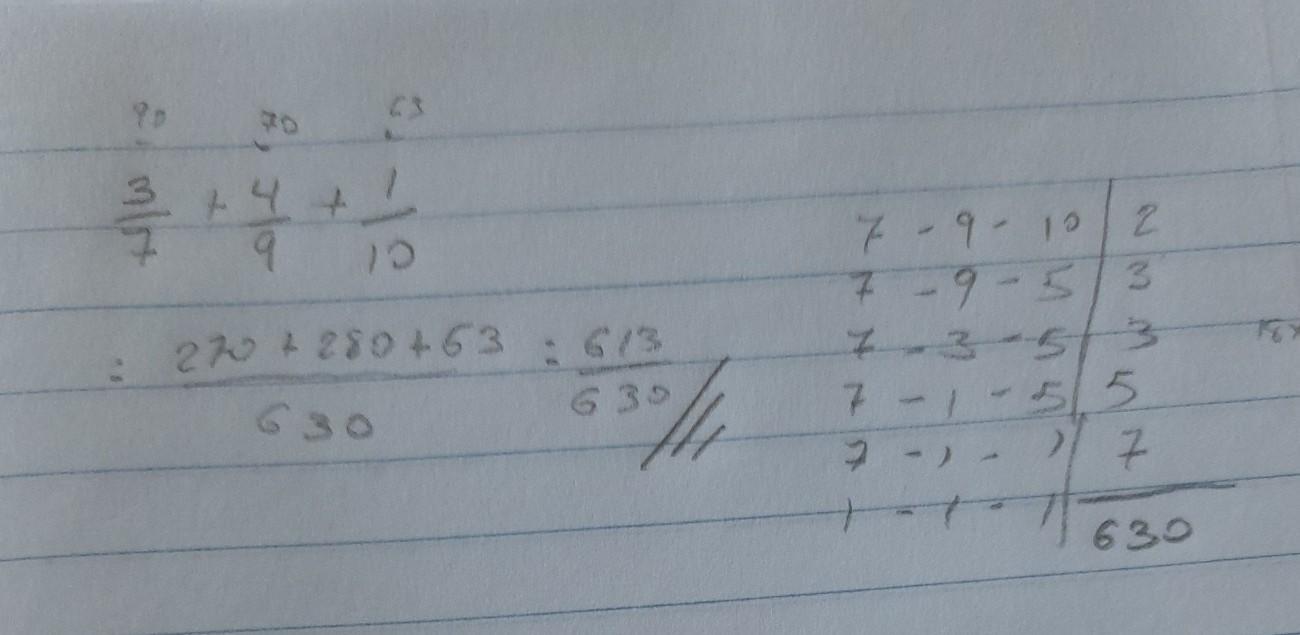 90 70 63
3/7 + 4/9 + 1/10
= 270 + 280 + 63 / 630 = 613/630
7 - 9 - 10 | 2
7 - 9 - 5 | 3
7 - 3 - 5 | 3
7 - 1 - 5 | 5
7 - 1 - 1 | 7
1 - 1 - 1 | 630